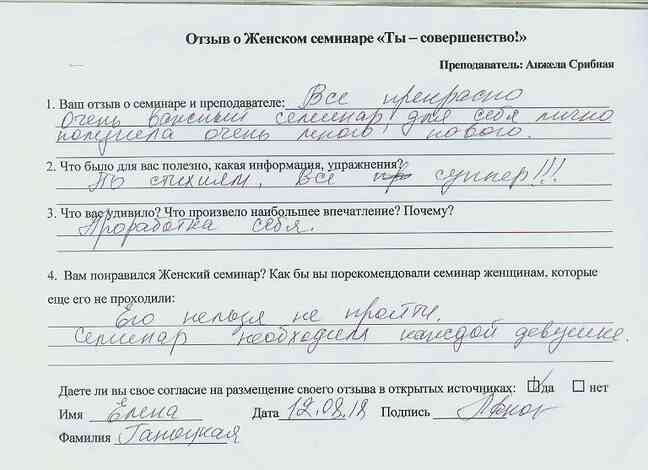 Отзыв о Женском семинаре «Ты – совершенство!»
Преподаватель: Анжела Срибная
1. Ваш отзыв о семинаре и преподавателе: Все прекрасно
Очень важный семинар, для себя лично
получила очень много нового.
2. Что было для вас полезно, какая информация, упражнения?
По стихиям. Все суппер!!!
3. Что вас удивило? Что произвело наибольшее впечатление? Почему?
Проработка себя.
4. Вам понравился Женский семинар? Как бы вы порекомендовали семинар женщинам, которые
еще его не проходили:
Его нельзя не пройти.
Семинар необходим каждой девушке.
Даете ли вы свое согласие на размещение своего отзыва в открытых источниках: да нет
Имя Елена Дата 12.08.18 Подпись
Фамилия